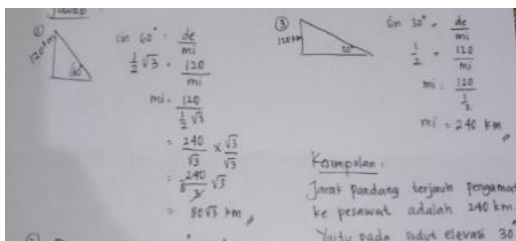 Jawab
①
120 km
60°
sin 60° = de/mi
1/2 √3 = 120/mi
mi = 120 / (1/2 √3)
= 240/√3 × √3/√3
= 240/3 √3
= 80√3 km
③
120 km
30°
sin 30° = de/mi
1/2 = 120/mi
mi = 120 / (1/2)
mi = 240 km
Kesimpulan :
Jarak pandang terjauh pengamat
ke pesawat adalah 240 km.
Yaitu pada sudut elevasi 30°